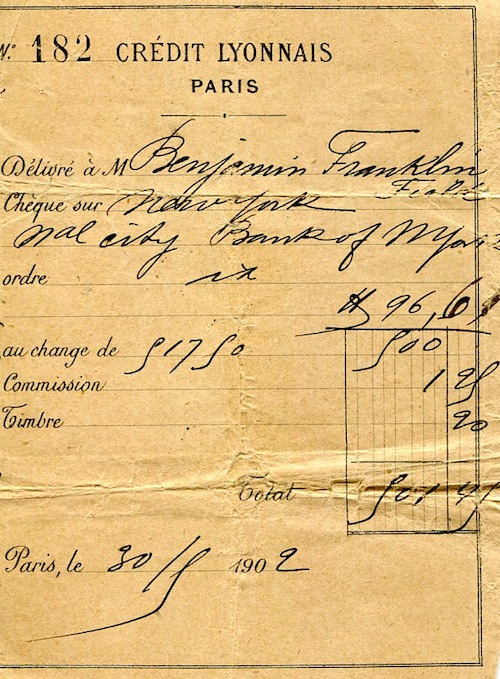 N° 182 CRÉDIT LYONNAIS
PARIS
Délivré à M Benjamin Franklin
Field
Chèque sur New York
Nal city Bank of NYork
ordre
$ 96,61
au change de 517 50 500
Commission 1 25
Timbre 20
Total 501,45
Paris, le 30/5 1902